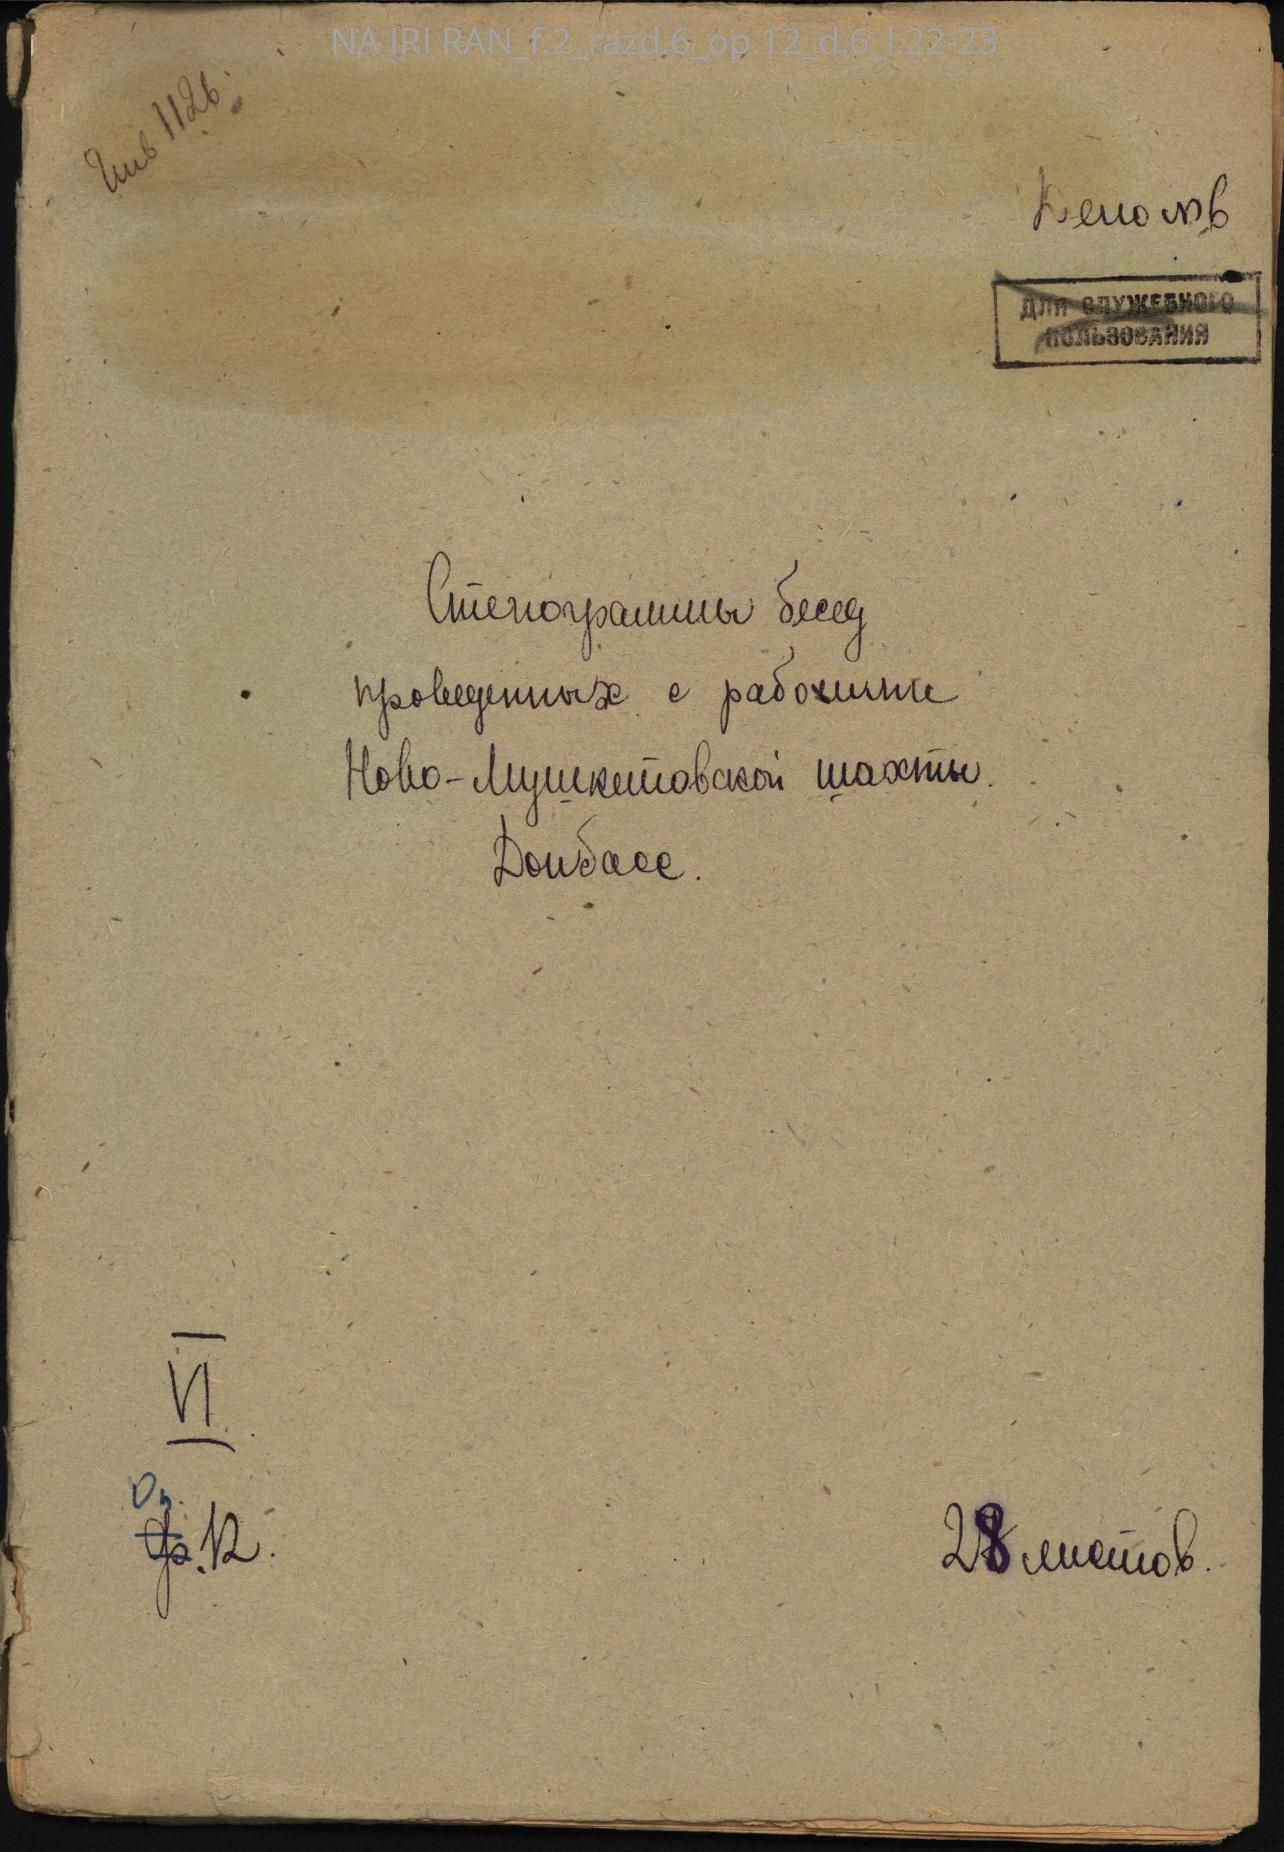 NA IRI RAN_f.2_razd.6_op.12_d.6_l.22-23
Инв 1126.
Дело №6
ДЛЯ СЛУЖЕБНОГО
ПОЛЬЗОВАНИЯ
Стенограммы бесед
проведенных с рабочими
Ново-Мушкетовской шахты.
Донбасс.
VI
Оп.
ф. 12.
28 листов.